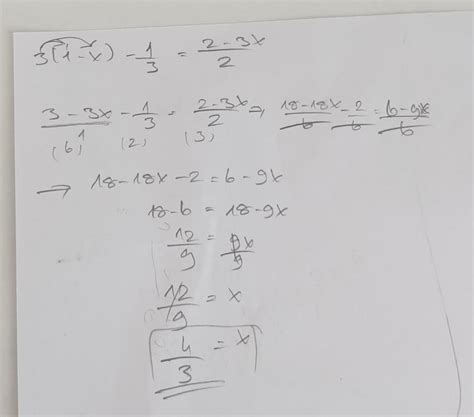 3(1-x) - 1/3 = (2-3x)/2
(3-3x)/1 - 1/3 = (2-3x)/2 ⇒ (18-18x)/6 - 2/6 = (6-9x)/6
(6) (2) (3)
→ 18-18x-2=6-9x
18-6 = 18-9x
12/9 = 9x/9
12/9 = x
4/3 = x